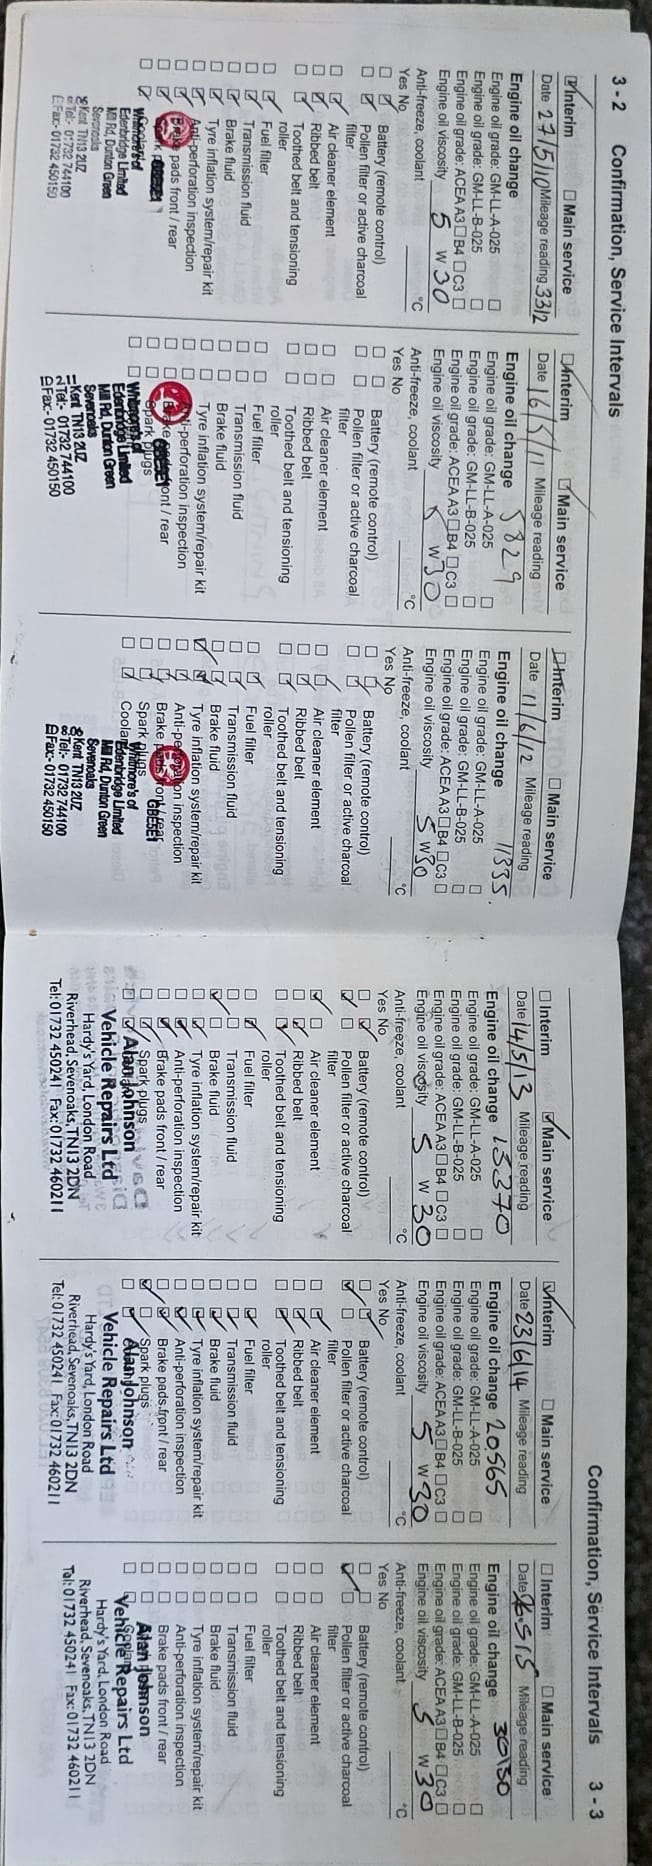 3 - 2 Confirmation, Service Intervals
Interim Main service
Date 27/5/10 Mileage reading 3312
Engine oil change
Engine oil grade: GM-LL-A-025
Engine oil grade: GM-LL-B-025
Engine oil grade: ACEA A3 B4 C3
Engine oil viscosity 5 W 30
Anti-freeze, coolant °C
Yes No
Battery (remote control)
Pollen filter or active charcoal
filter
Air cleaner element
Ribbed belt
Toothed belt and tensioning
roller
Fuel filter
Transmission fluid
Brake fluid
Tyre inflation system/repair kit
Anti-perforation inspection
Brake pads front / rear
Whitmore's of
Edenbridge Limited
Mill Rd, Dunton Green
Sevenoaks
Kent TN13 2UZ
Tel:- 01732 744100
Fax:- 01732 450150
Interim Main service
Date 16/5/11 Mileage reading
Engine oil change 5829
Engine oil grade: GM-LL-A-025
Engine oil grade: GM-LL-B-025
Engine oil grade: ACEA A3 B4 C3
Engine oil viscosity 5 W 30
Anti-freeze, coolant °C
Yes No
Battery (remote control)
Pollen filter or active charcoal
filter
Air cleaner element
Ribbed belt
Toothed belt and tensioning
roller
Fuel filter
Transmission fluid
Brake fluid
Tyre inflation system/repair kit
Anti-perforation inspection
Brake pads front / rear
Spark plugs
Whitmore's of
Edenbridge Limited
Mill Rd, Dunton Green
Sevenoaks
Kent TN13 2UZ
Tel:- 01732 744100
Fax:- 01732 450150
Interim Main service
Date 11/6/12 Mileage reading
Engine oil change 11335
Engine oil grade: GM-LL-A-025
Engine oil grade: GM-LL-B-025
Engine oil grade: ACEA A3 B4 C3
Engine oil viscosity 5 W 30
Anti-freeze, coolant °C
Yes No
Battery (remote control)
Pollen filter or active charcoal
filter
Air cleaner element
Ribbed belt
Toothed belt and tensioning
roller
Fuel filter
Transmission fluid
Brake fluid
Tyre inflation system/repair kit
Anti-perforation inspection
Brake pads front / rear
Spark plugs
Coolant
Whitmore's of
Edenbridge Limited
Mill Rd, Dunton Green
Sevenoaks
Kent TN13 2UZ
Tel:- 01732 744100
Fax:- 01732 450150
Confirmation, Service Intervals 3 - 3
Interim Main service
Date 14/5/13 Mileage reading
Engine oil change 13370
Engine oil grade: GM-LL-A-025
Engine oil grade: GM-LL-B-025
Engine oil grade: ACEA A3 B4 C3
Engine oil viscosity 5 W 30
Anti-freeze, coolant °C
Yes No
Battery (remote control)
Pollen filter or active charcoal
filter
Air cleaner element
Ribbed belt
Toothed belt and tensioning
roller
Fuel filter
Transmission fluid
Brake fluid
Tyre inflation system/repair kit
Anti-perforation inspection
Brake pads front / rear
Spark plugs
Alan Johnson
Vehicle Repairs Ltd
Hardy's Yard, London Road
Riverhead, Sevenoaks, TN13 2DN
Tel: 01732 450241 Fax: 01732 460211
Interim Main service
Date 23/6/14 Mileage reading
Engine oil change 20565
Engine oil grade: GM-LL-A-025
Engine oil grade: GM-LL-B-025
Engine oil grade: ACEA A3 B4 C3
Engine oil viscosity 5 W 30
Anti-freeze, coolant °C
Yes No
Battery (remote control)
Pollen filter or active charcoal
filter
Air cleaner element
Ribbed belt
Toothed belt and tensioning
roller
Fuel filter
Transmission fluid
Brake fluid
Tyre inflation system/repair kit
Anti-perforation inspection
Brake pads front / rear
Spark plugs
Alan Johnson
Vehicle Repairs Ltd
Hardy's Yard, London Road
Riverhead, Sevenoaks, TN13 2DN
Tel: 01732 450241 Fax: 01732 460211
Interim Main service
Date Mileage reading
Engine oil change 30150
Engine oil grade: GM-LL-A-025
Engine oil grade: GM-LL-B-025
Engine oil grade: ACEA A3 B4 C3
Engine oil viscosity 5 W 30
Anti-freeze, coolant °C
Yes No
Battery (remote control)
Pollen filter or active charcoal
filter
Air cleaner element
Ribbed belt
Toothed belt and tensioning
roller
Fuel filter
Transmission fluid
Brake fluid
Tyre inflation system/repair kit
Anti-perforation inspection
Brake pads front / rear
Alan Johnson
Vehicle Repairs Ltd
Hardy's Yard, London Road
Riverhead, Sevenoaks, TN13 2DN
Tel: 01732 450241 Fax: 01732 460211